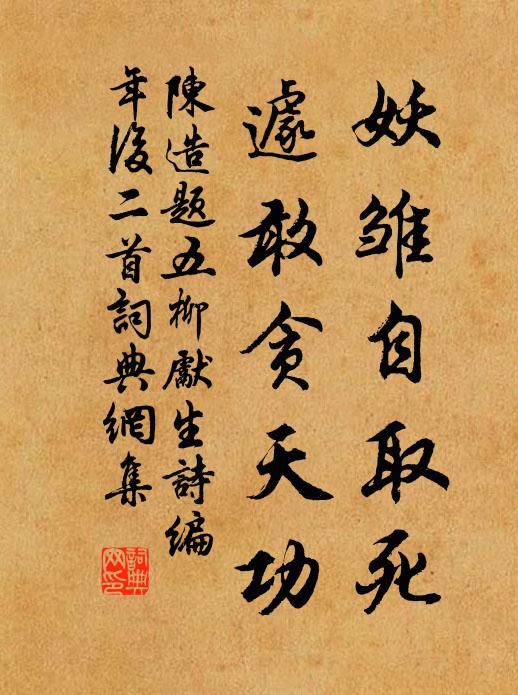 妖雏自取死
遽敢貪天功
陳造題五柳獻生詩編
年後二首詞典網集
詞典
网印